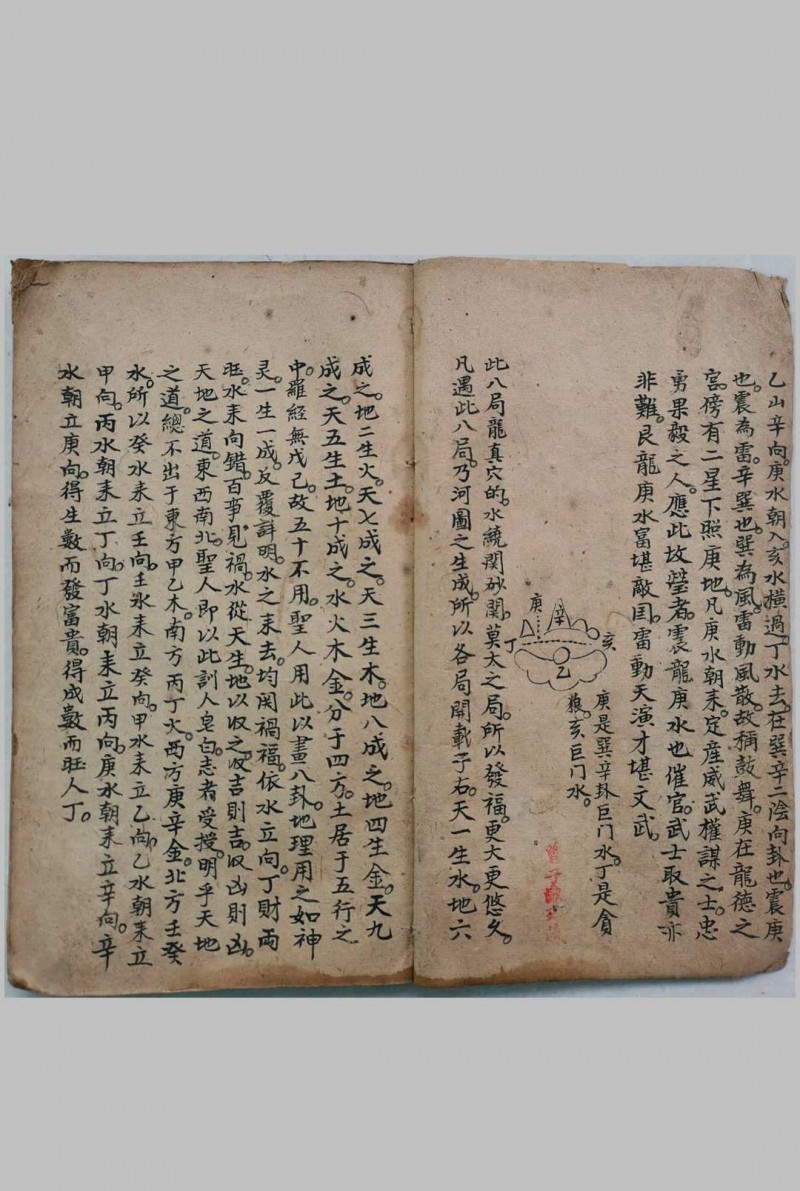 乙山辛向。庚水朝入。亥水橫過。丁水去。在巽辛二陰向卦也。震庚
也。震為雷。辛巽也。巽為風。雷動風散。故稱鼓舞。庚在龍德之
宮。傍有二星下照庚地。凡庚水朝耒。定産威武權謀之士。忠
勇果毅之人。應此故瑩者。震龍庚水也。催官。武士取貴亦
非難。艮龍庚水富堪敵囯。雷動天演才堪文武。
庚是巽辛卦巨门水。丁是貪
狼。亥巨门水。
庚
辛
亥
丁
乙
此八局龍真穴的。水繞関砂関。莫大之局。所以發福。更大更悠久。
凡遇此八局。乃河圖之生成。所以各局開載于右。天一生水。地六
成之。地二生火。天七成之。天三生木。地八成之。地四生金。天九
成之。天五生土。地十成之。水火木金。分于四方。土居于五行之
中。羅經無戊己。故五十不用。聖人用此以畫八卦。地理用之如神
灵。一生一成。反覆詳明。水之耒去。均関禍福。依水立向。丁財両
旺。水耒向錯。百事見禍。水從天生。地以収之。収吉則吉。収凶則凶。
天地之道。東西南北。聖人即以此訓人皂白。志者受授。明乎天地
之道。總不出于東方甲乙木。南方丙丁火。西方庚辛金。北方壬癸
水。所以癸水耒立壬向。壬水耒立癸向。甲水耒立乙向。乙水朝耒立
甲向。丙水朝耒立丁向。丁水朝耒立丙向。庚水朝耒立辛向。辛
水朝立庚向。得生數而發富貴。得成數而旺人丁。